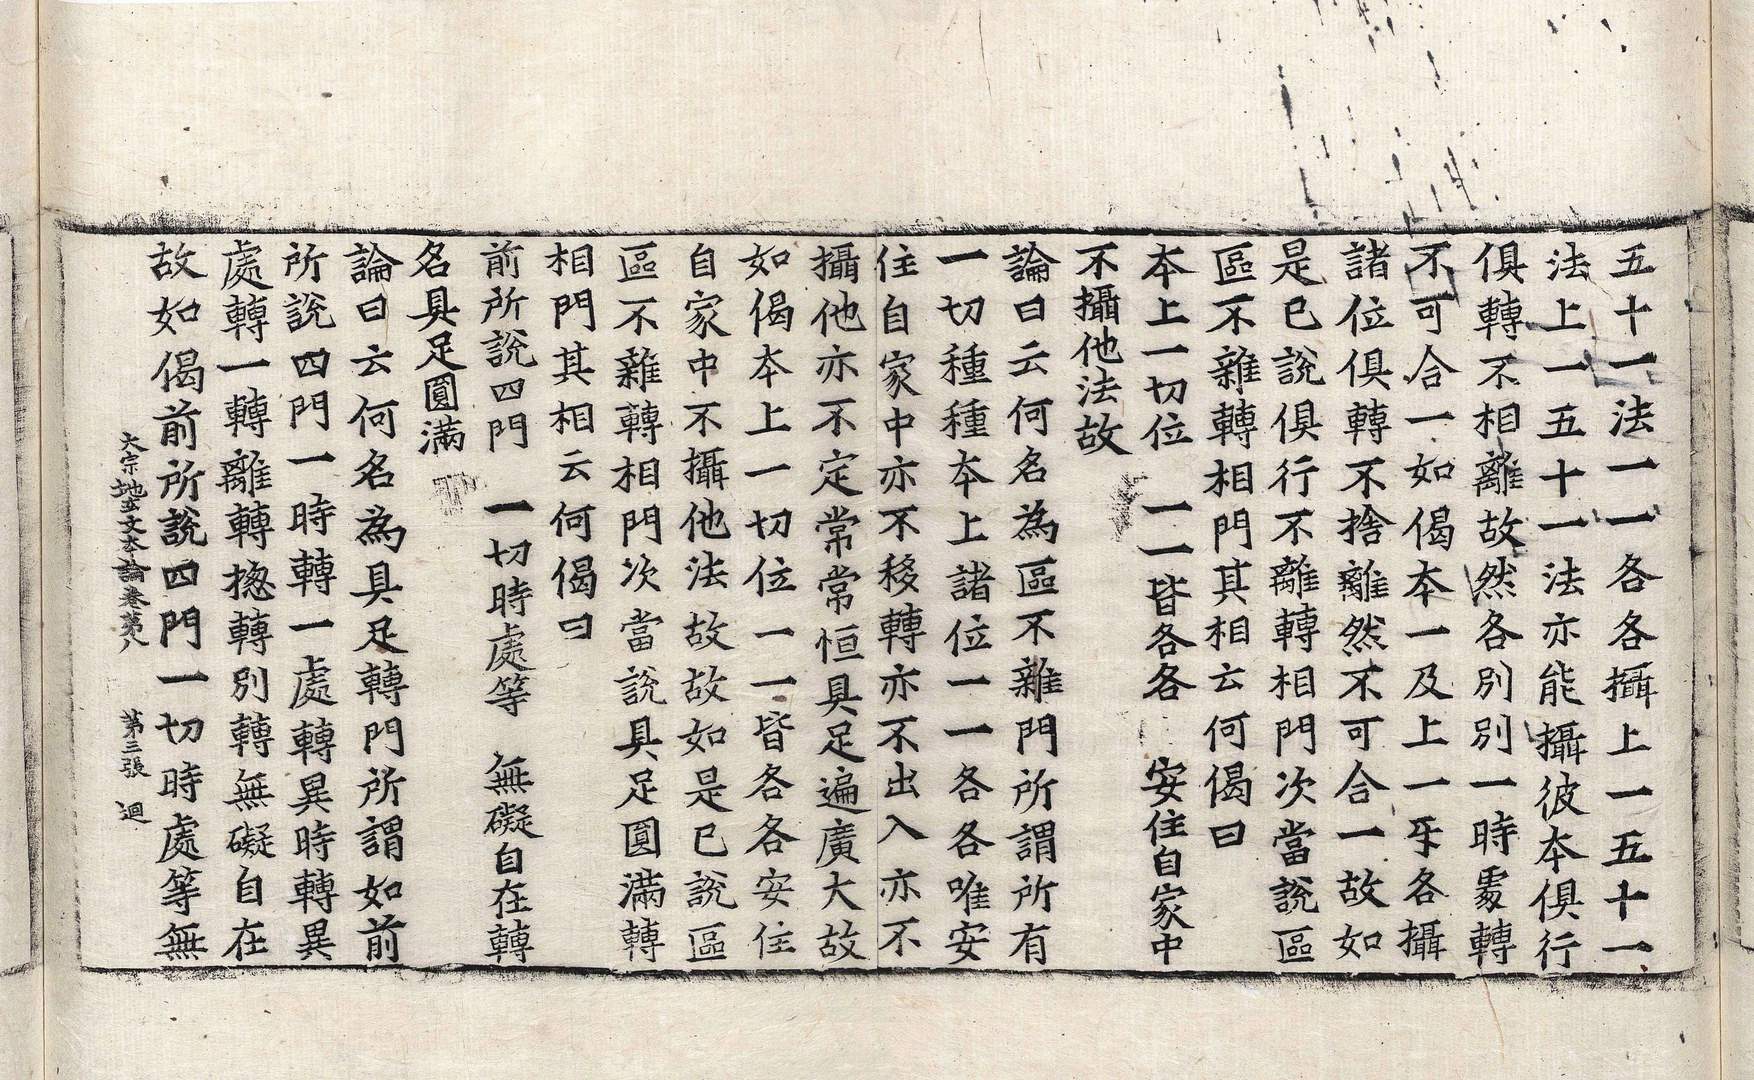 五十一法一一一各各攝上一五十一
法上一五十一法亦能攝彼本俱行
俱轉不相離故然各別別一時處轉
不可合一如偈本一及上一㸦各攝
諸位俱轉不捨離然不可合一故如
是已說俱行不離轉相門次當說區
區不雜轉相門其相云何偈曰
本上一切位 一一皆各各 安住自家中
不攝他法故
論曰云何名為區不雜門所謂所有
一切種種本上諸位一一各各唯安
住自家中亦不移轉亦不出入亦不
攝他亦不定常常恒具足遍廣大故
如偈本上一切位一一皆各各安住
自家中不攝他法故故如是已說區
區不雜轉相門次當說具足圓滿轉
相門其相云何偈曰
前所說四門 一切時處等 無礙自在轉
名具足圓滿
論曰云何名為具足轉門所謂如前
所說四門一時轉一處轉異時轉異
處轉一轉離轉揔轉別轉無礙自在
故如偈前所說四門一切時處等無
大宗地玄文本論卷第八 第三張 迴